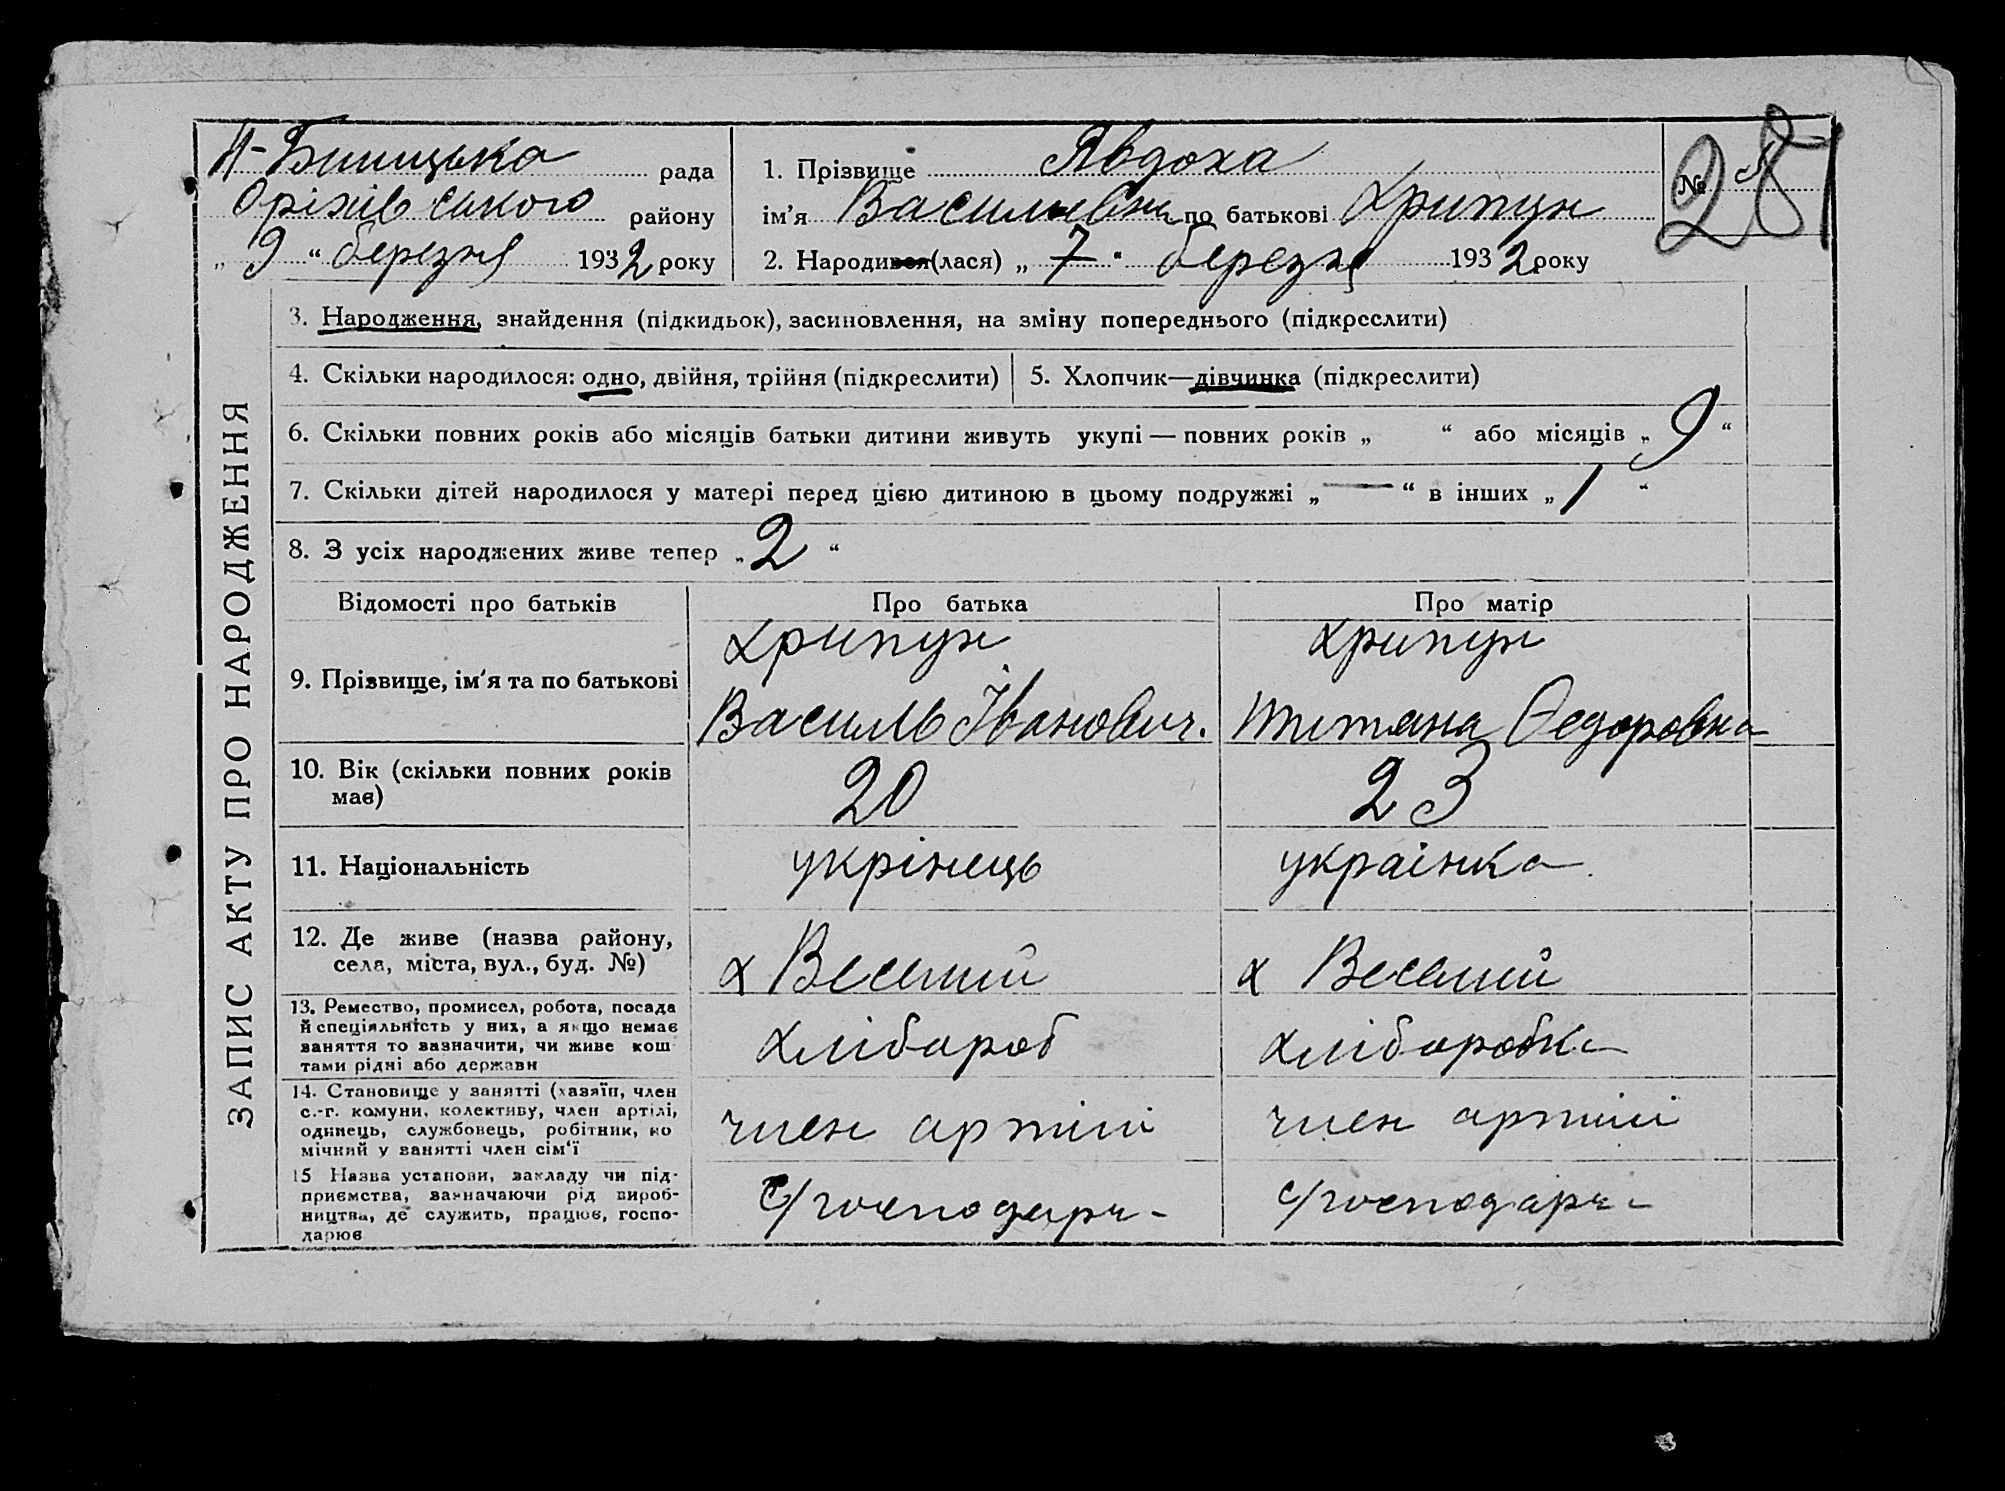 рада
Оріхівського району
„ 9 “ березня 1932 року
1. Прізвище Явдоха
ім’я Василівна по батькові Хрипун
2. Народився(лася) „ 7 “ березня 1932 року
№ 287
ЗАПИС АКТУ ПРО НАРОДЖЕННЯ
3. Народження, знайдення (підкидьок), засиновлення, на зміну попереднього (підкреслити)
4. Скільки народилося: одно, двійня, трійня (підкреслити)
5. Хлопчик—дівчинка (підкреслити)
6. Скільки повних років або місяців батьки дитини живуть укупі — повних років „ “ або місяців „ 9 “
7. Скільки дітей народилося у матері перед цією дитиною в цьому подружжі „ — “ в інших „ 1 “
8. З усіх народжених живе тепер „ 2 “
Відомості про батьків Про батька Про матір
Хрипун Хрипун
9. Прізвище, ім’я та по батькові
Василь Іванович. Титяна Федоровна
10. Вік (скільки повних років
має)
20 23
11. Національність укрінець украінка
12. Де живе (назва району,
села, міста, вул., буд. №)
х Веселий х Веселий
13. Ремество, промисел, робота, посада
й спеціяльність у них, а якщо немає
заняття то зазначити, чи живе кош
тами рідні або держави
хлібороб хліборобка
14. Становище у занятті (хазяїн, член
с.-г. комуни, колективу, член артілі,
одинець, службовець, робітник, по
мічний у занятті член сім‘ї
член артілі член артілі
15 Назва установи, закладу чи під-
приємства, зазначаючи рід вироб-
ництва, де служить, працює, госпо-
дарює
С/господарч- с/господарч-